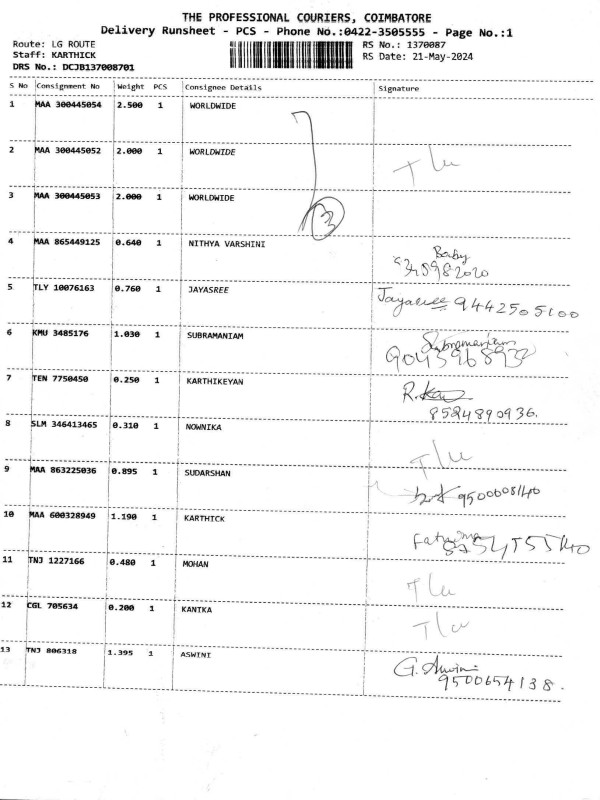 THE PROFESSIONAL COURIERS, COIMBATORE
Delivery Runsheet - PCS - Phone No.:0422-3505555 - Page No.:1
Route: LG ROUTE
Staff: KARTHICK
DRS No.: DCJB137008701
RS No.: 1370087
RS Date: 21-May-2024
S No Consignment No Weight PCS Consignee Details Signature
1 MAA 300445054 2.500 1 WORLDWIDE
2 MAA 300445052 2.000 1 WORLDWIDE
3 MAA 300445053 2.000 1 WORLDWIDE
4 MAA 865449125 0.640 1 NITHYA VARSHINI Baby
5 TLY 10076163 0.760 1 JAYASREE Jayasree 9442505100
6 KMU 3485176 1.030 1 SUBRAMANIAM Subramaniam
7 TEN 7750450 0.250 1 KARTHIKEYAN
8524890936.
8 SLM 346413465 0.310 1 NOWNIKA
9 MAA 863225036 0.895 1 SUDARSHAN 9500008140
10 MAA 600328949 1.190 1 KARTHICK Fathima
11 TNJ 1227166 0.480 1 MOHAN
12 CGL 705634 0.200 1 KANIKA
13 TNJ 806318 1.395 1 ASWINI G. Aswini
9500654138.